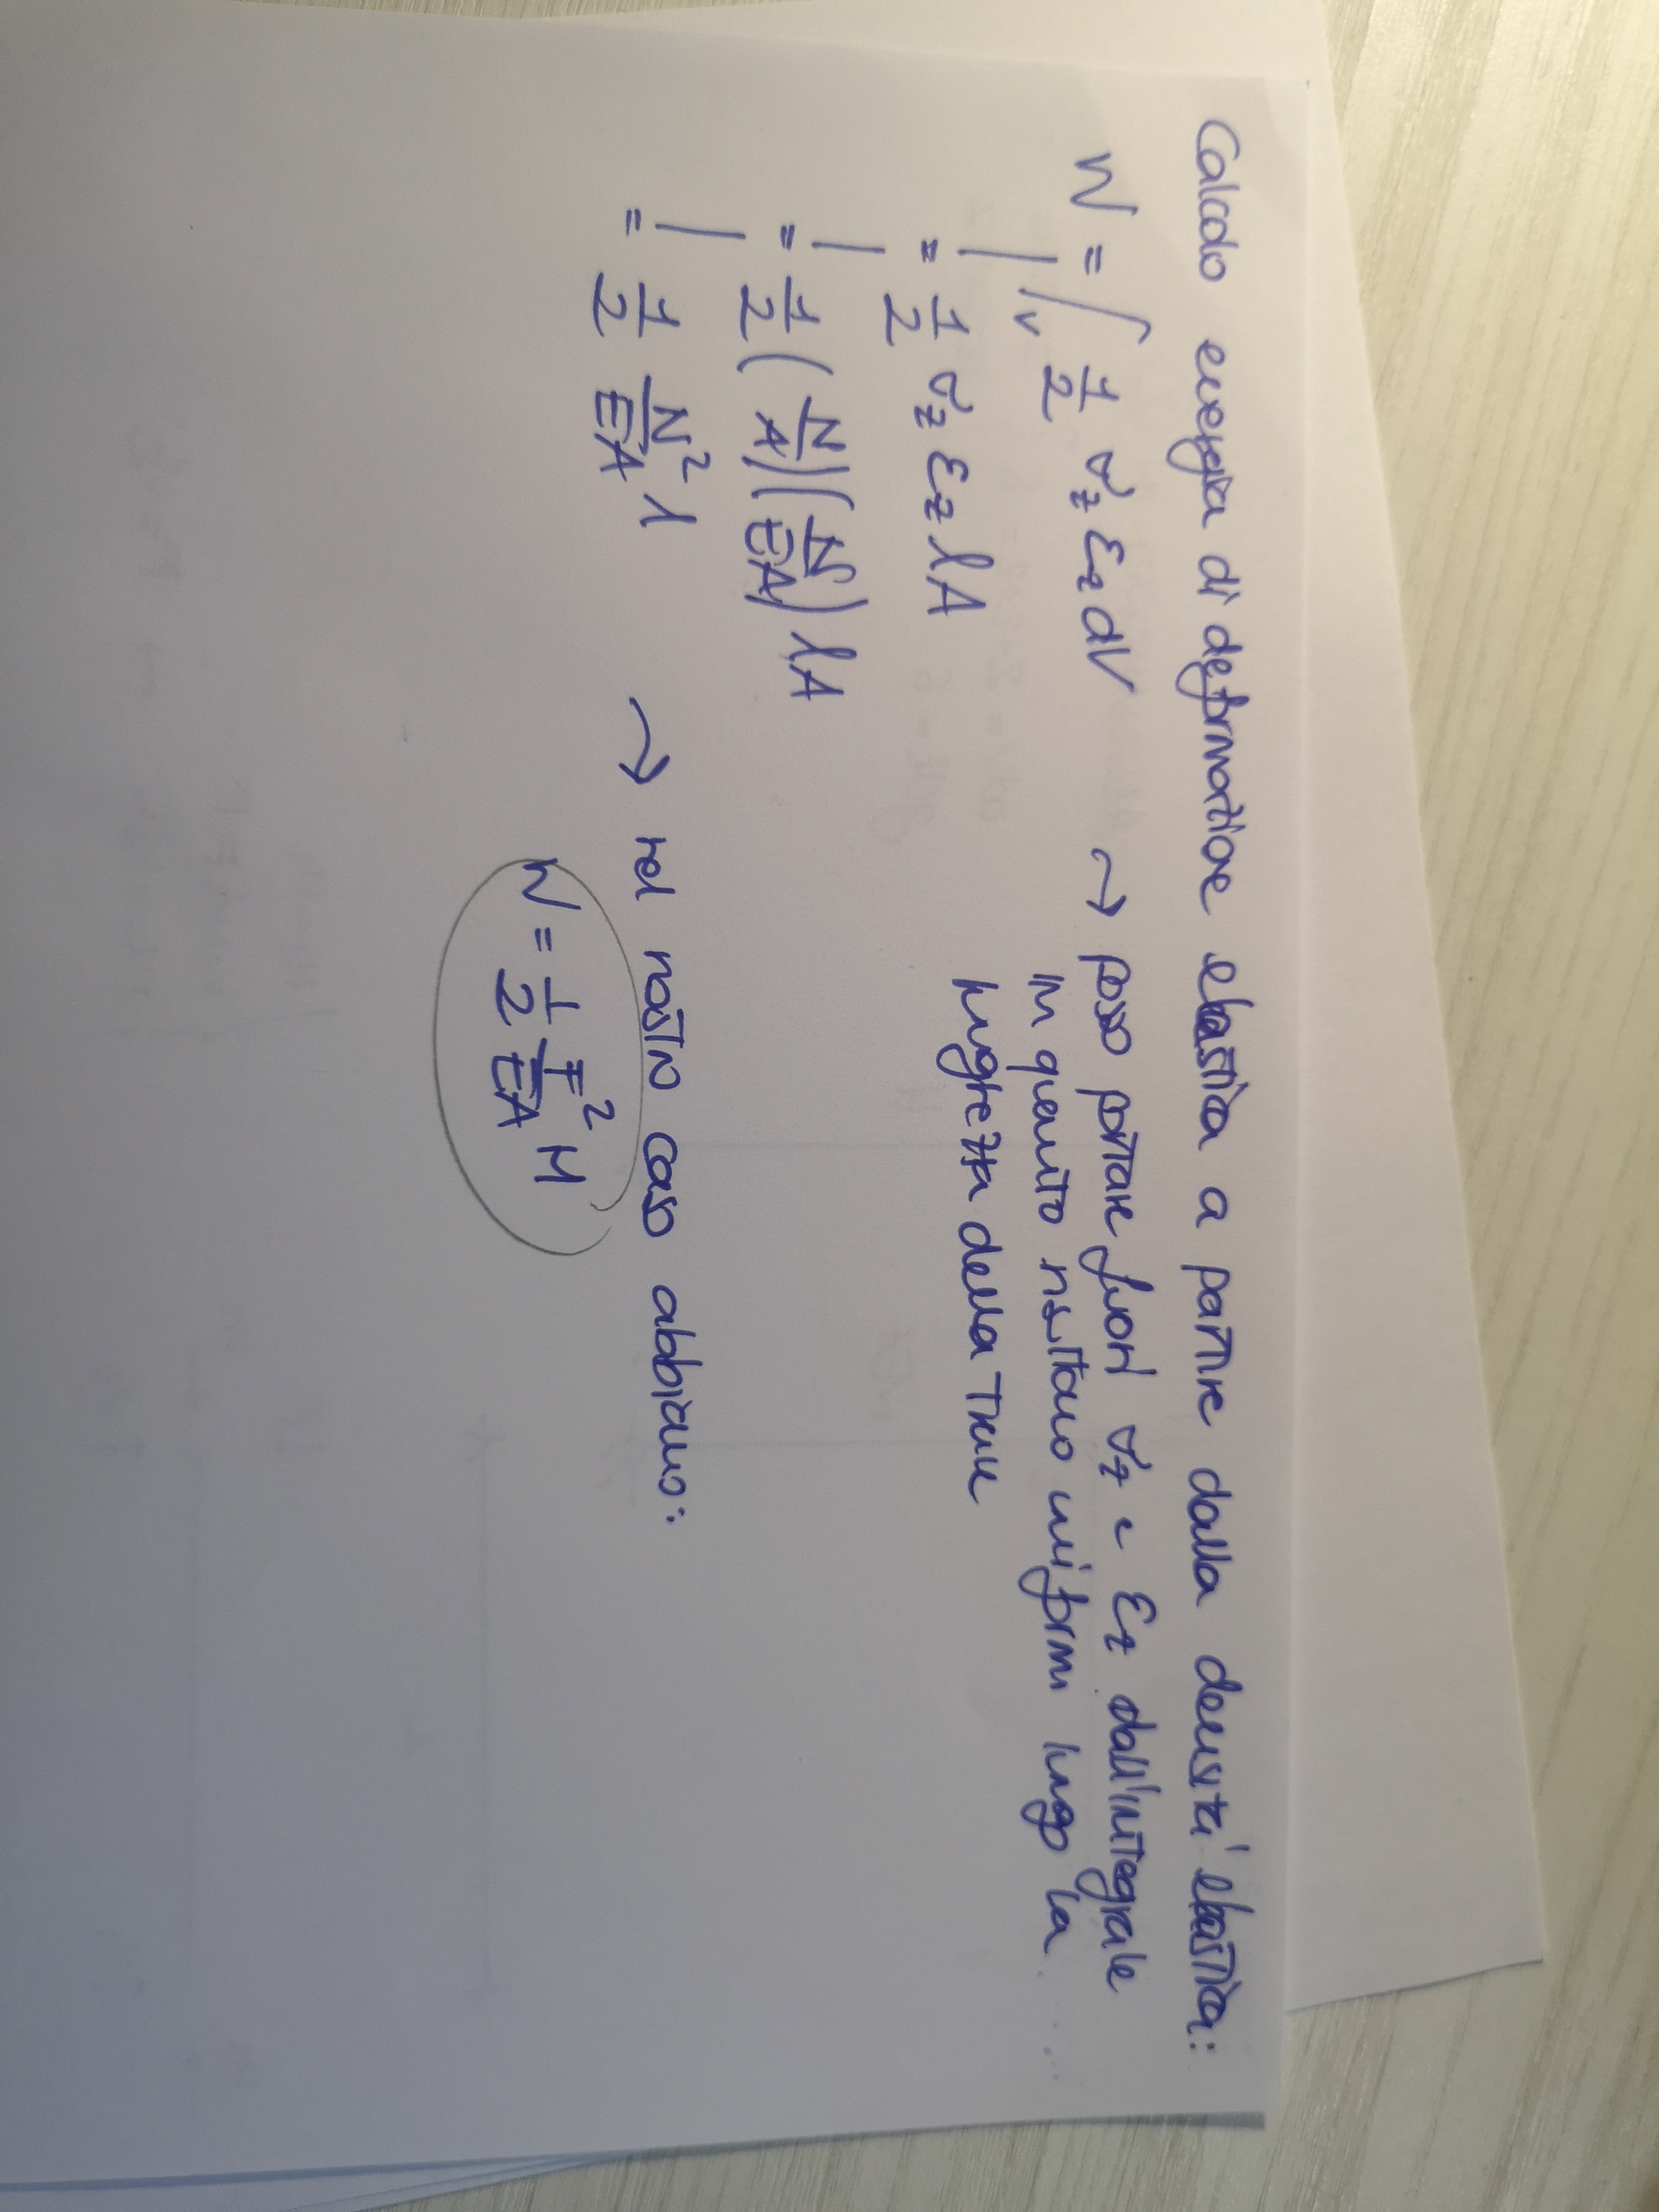 Calcolo energia di deformazione elastica a partire dalla densità elastica:
W = ∫_V 1/2 σ_z ε_z dV → posso portare fuori σ_z e ε_z dall'integrale
in quanto risultano uniformi lungo la
lunghezza della trave
= 1/2 σ_z ε_z l A
= 1/2 (N/A)(N/EA) l A
= 1/2 N²/EA l → nel nostro caso abbiamo:
W = 1/2 F²/EA H